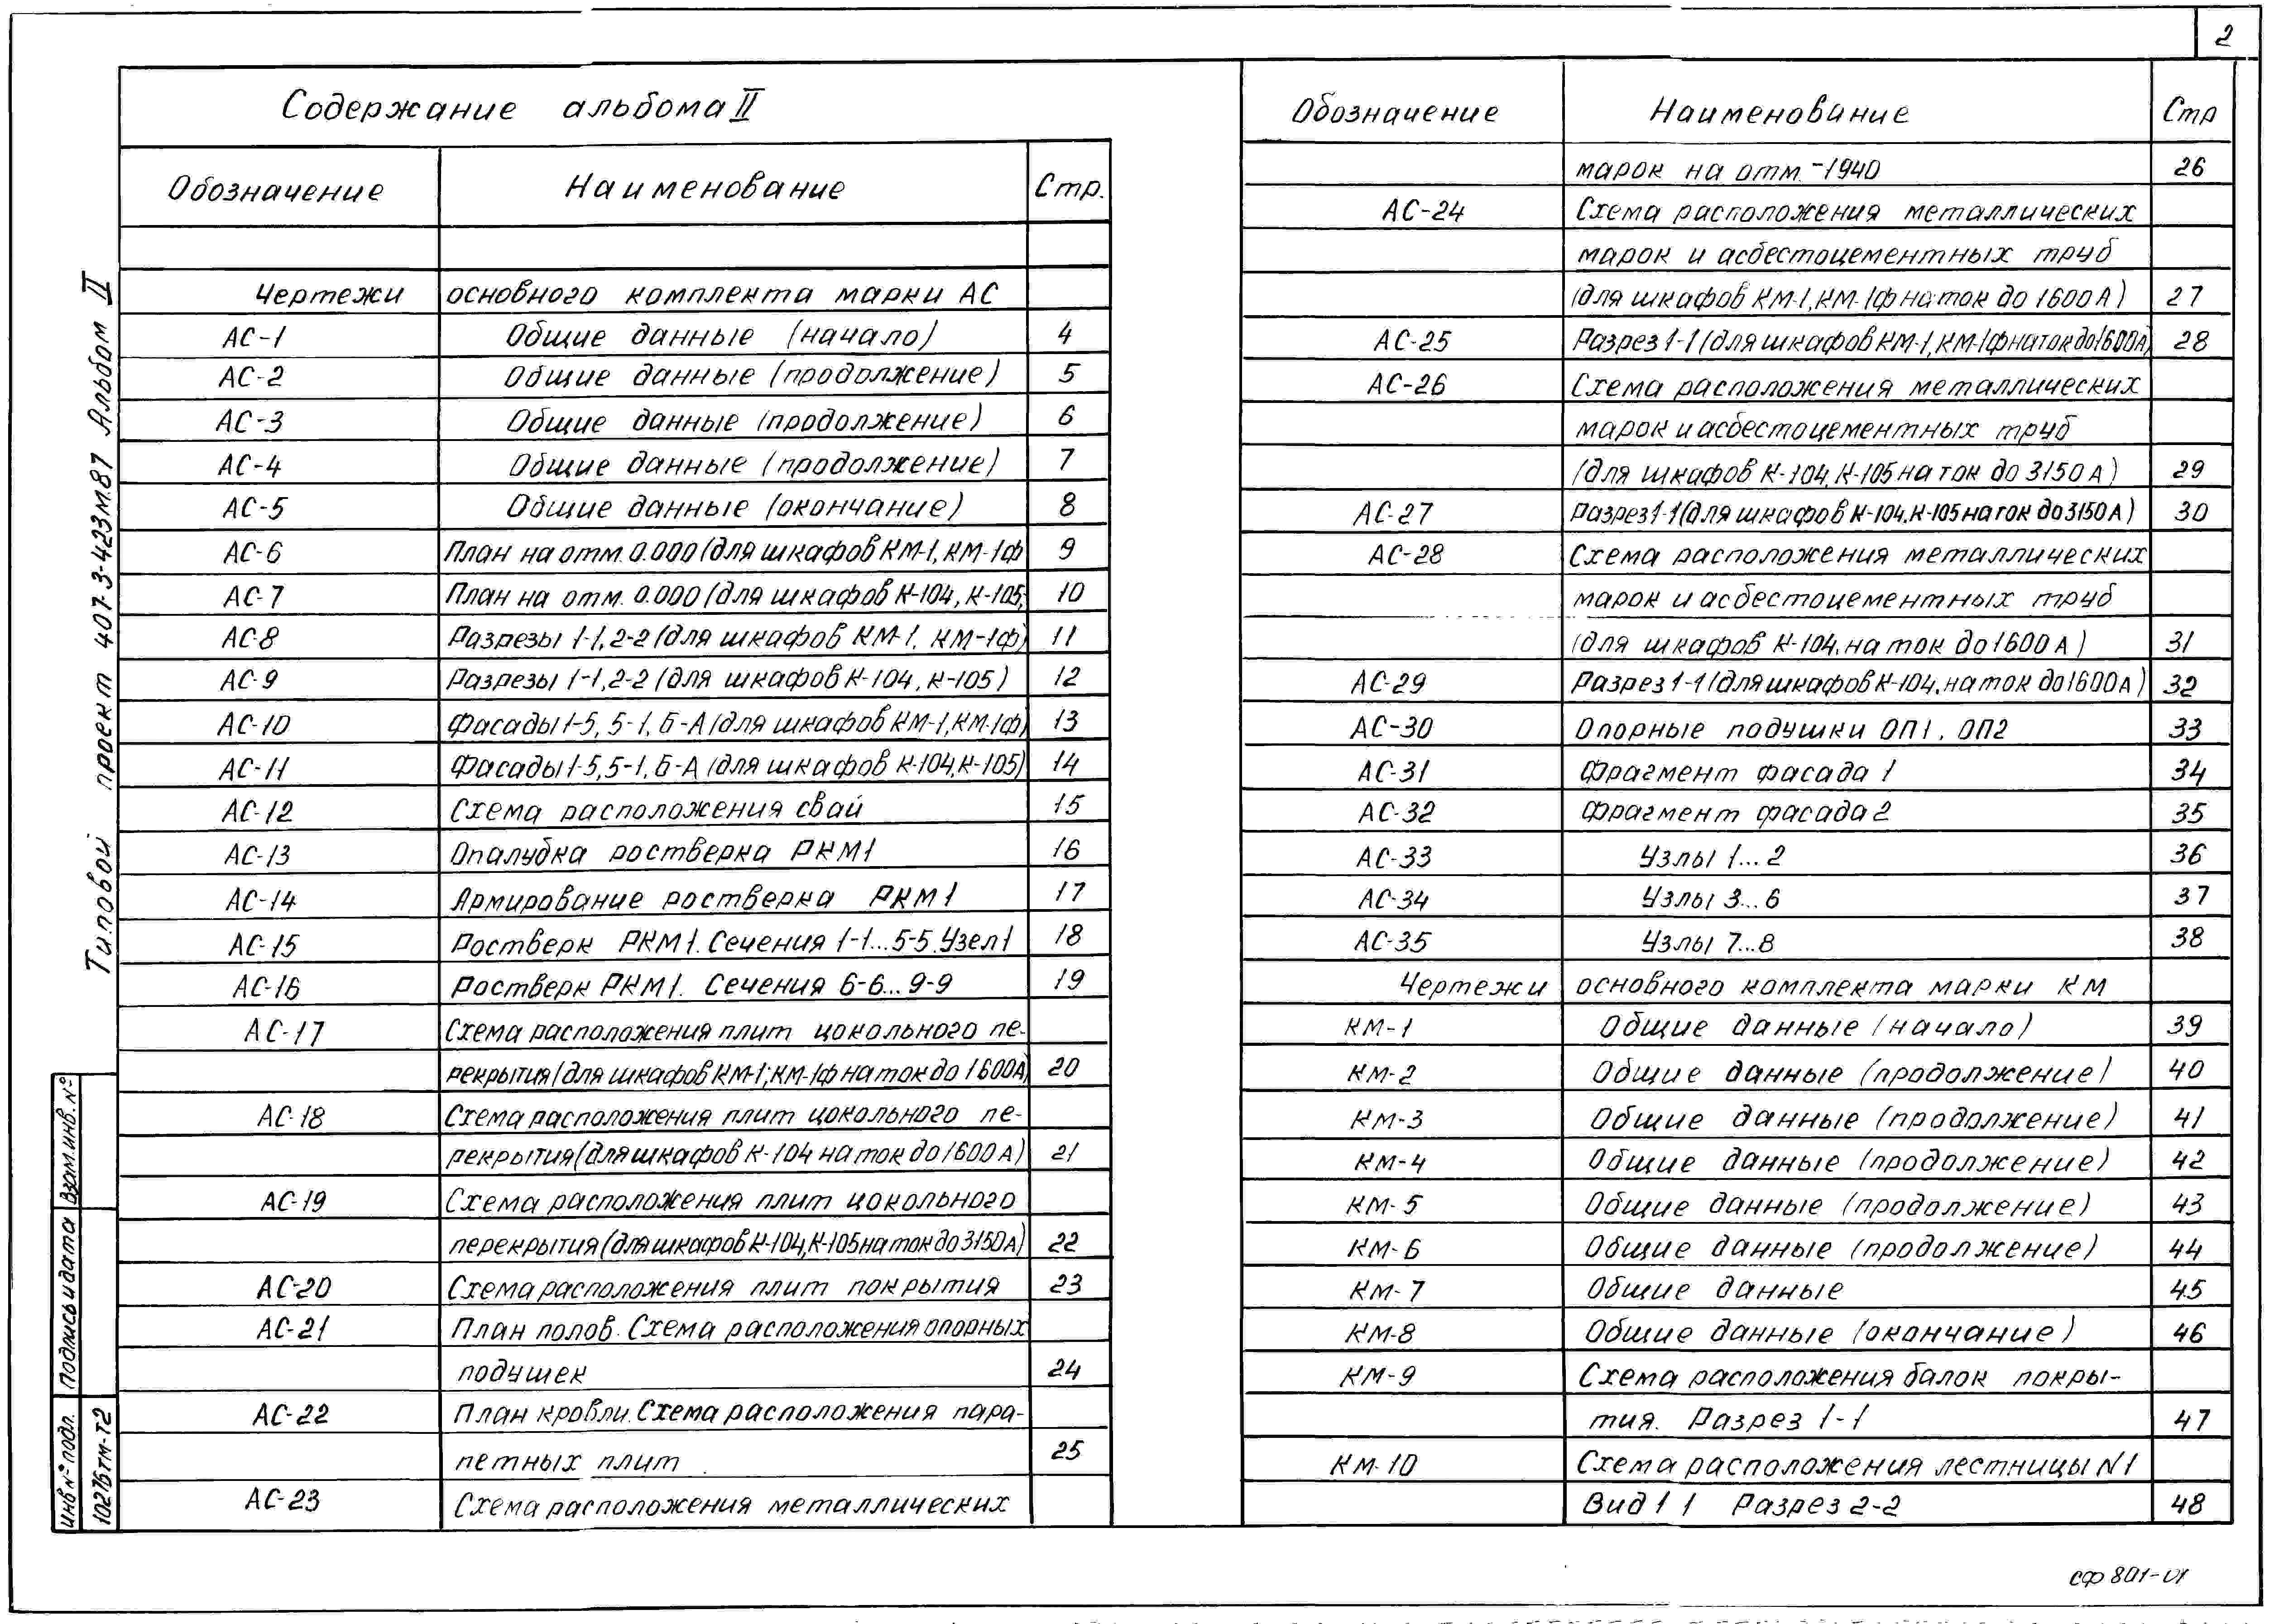 2
Содержание альбома II
Обозначение Наименование Стр.
Чертежи основного комплекта марки АС
АС-1 Общие данные (начало) 4
АС-2 Общие данные (продолжение) 5
АС-3 Общие данные (продолжение) 6
АС-4 Общие данные (продолжение) 7
АС-5 Общие данные (окончание) 8
АС-6 План на отм. 0.000 (для шкафов КМ-1, КМ-1ф 9
АС-7 План на отм. 0.000 (для шкафов К-104, К-105, 10
АС-8 Разрезы 1-1, 2-2 (для шкафов КМ-1, КМ-1ф) 11
АС-9 Разрезы 1-1, 2-2 (для шкафов К-104, К-105) 12
АС-10 Фасады 1-5, 5-1, Б-А (для шкафов КМ-1, КМ-1ф) 13
АС-11 Фасады 1-5, 5-1, Б-А (для шкафов К-104, К-105) 14
АС-12 Схема расположения свай 15
АС-13 Опалубка ростверка РКМ1 16
АС-14 Армирование ростверка РКМ1 17
АС-15 Ростверк РКМ1. Сечения 1-1...5-5. Узел 1 18
АС-16 Ростверк РКМ1. Сечения 6-6...9-9 19
АС-17 Схема расположения плит цокольного пе-
рекрытия (для шкафов КМ-1, КМ-1ф на ток до 1600А) 20
АС-18 Схема расположения плит цокольного пе-
рекрытия (для шкафов К-104 на ток до 1600 А) 21
АС-19 Схема расположения плит цокольного
перекрытия (для шкафов К-104, К-105 на ток до 3150А) 22
АС-20 Схема расположения плит покрытия 23
АС-21 План полов. Схема расположения опорных
подушек 24
АС-22 План кровли. Схема расположения пара-
петных плит 25
АС-23 Схема расположения металлических
Обозначение Наименование Стр
марок на отм. -1940 26
АС-24 Схема расположения металлических
марок и асбестоцементных труб
(для шкафов КМ-1, КМ-1ф на ток до 1600 А) 27
АС-25 Разрез 1-1 (для шкафов КМ-1, КМ-1ф на ток до 1600А) 28
АС-26 Схема расположения металлических
марок и асбестоцементных труб
(для шкафов К-104, К-105 на ток до 3150 А) 29
АС-27 Разрез 1-1 (для шкафов К-104, К-105 на ток до 3150 А) 30
АС-28 Схема расположения металлических
марок и асбестоцементных труб
(для шкафов К-104, на ток до 1600 А) 31
АС-29 Разрез 1-1 (для шкафов К-104, на ток до 1600 А) 32
АС-30 Опорные подушки ОП1, ОП2 33
АС-31 Фрагмент фасада 1 34
АС-32 Фрагмент фасада 2 35
АС-33 Узлы 1...2 36
АС-34 Узлы 3...6 37
АС-35 Узлы 7...8 38
Чертежи основного комплекта марки КМ
КМ-1 Общие данные (начало) 39
КМ-2 Общие данные (продолжение) 40
КМ-3 Общие данные (продолжение) 41
КМ-4 Общие данные (продолжение) 42
КМ-5 Общие данные (продолжение) 43
КМ-6 Общие данные (продолжение) 44
КМ-7 Общие данные 45
КМ-8 Общие данные (окончание) 46
КМ-9 Схема расположения балок покры-
тия. Разрез 1-1 47
КМ-10 Схема расположения лестницы N1
Вид 1 1 Разрез 2-2 48
Типовой проект 407-3-423м.87 Альбом II
Взам.инв.№
Подпись и дата
Инв № подл.
10276тм-т2
СФ 801-01